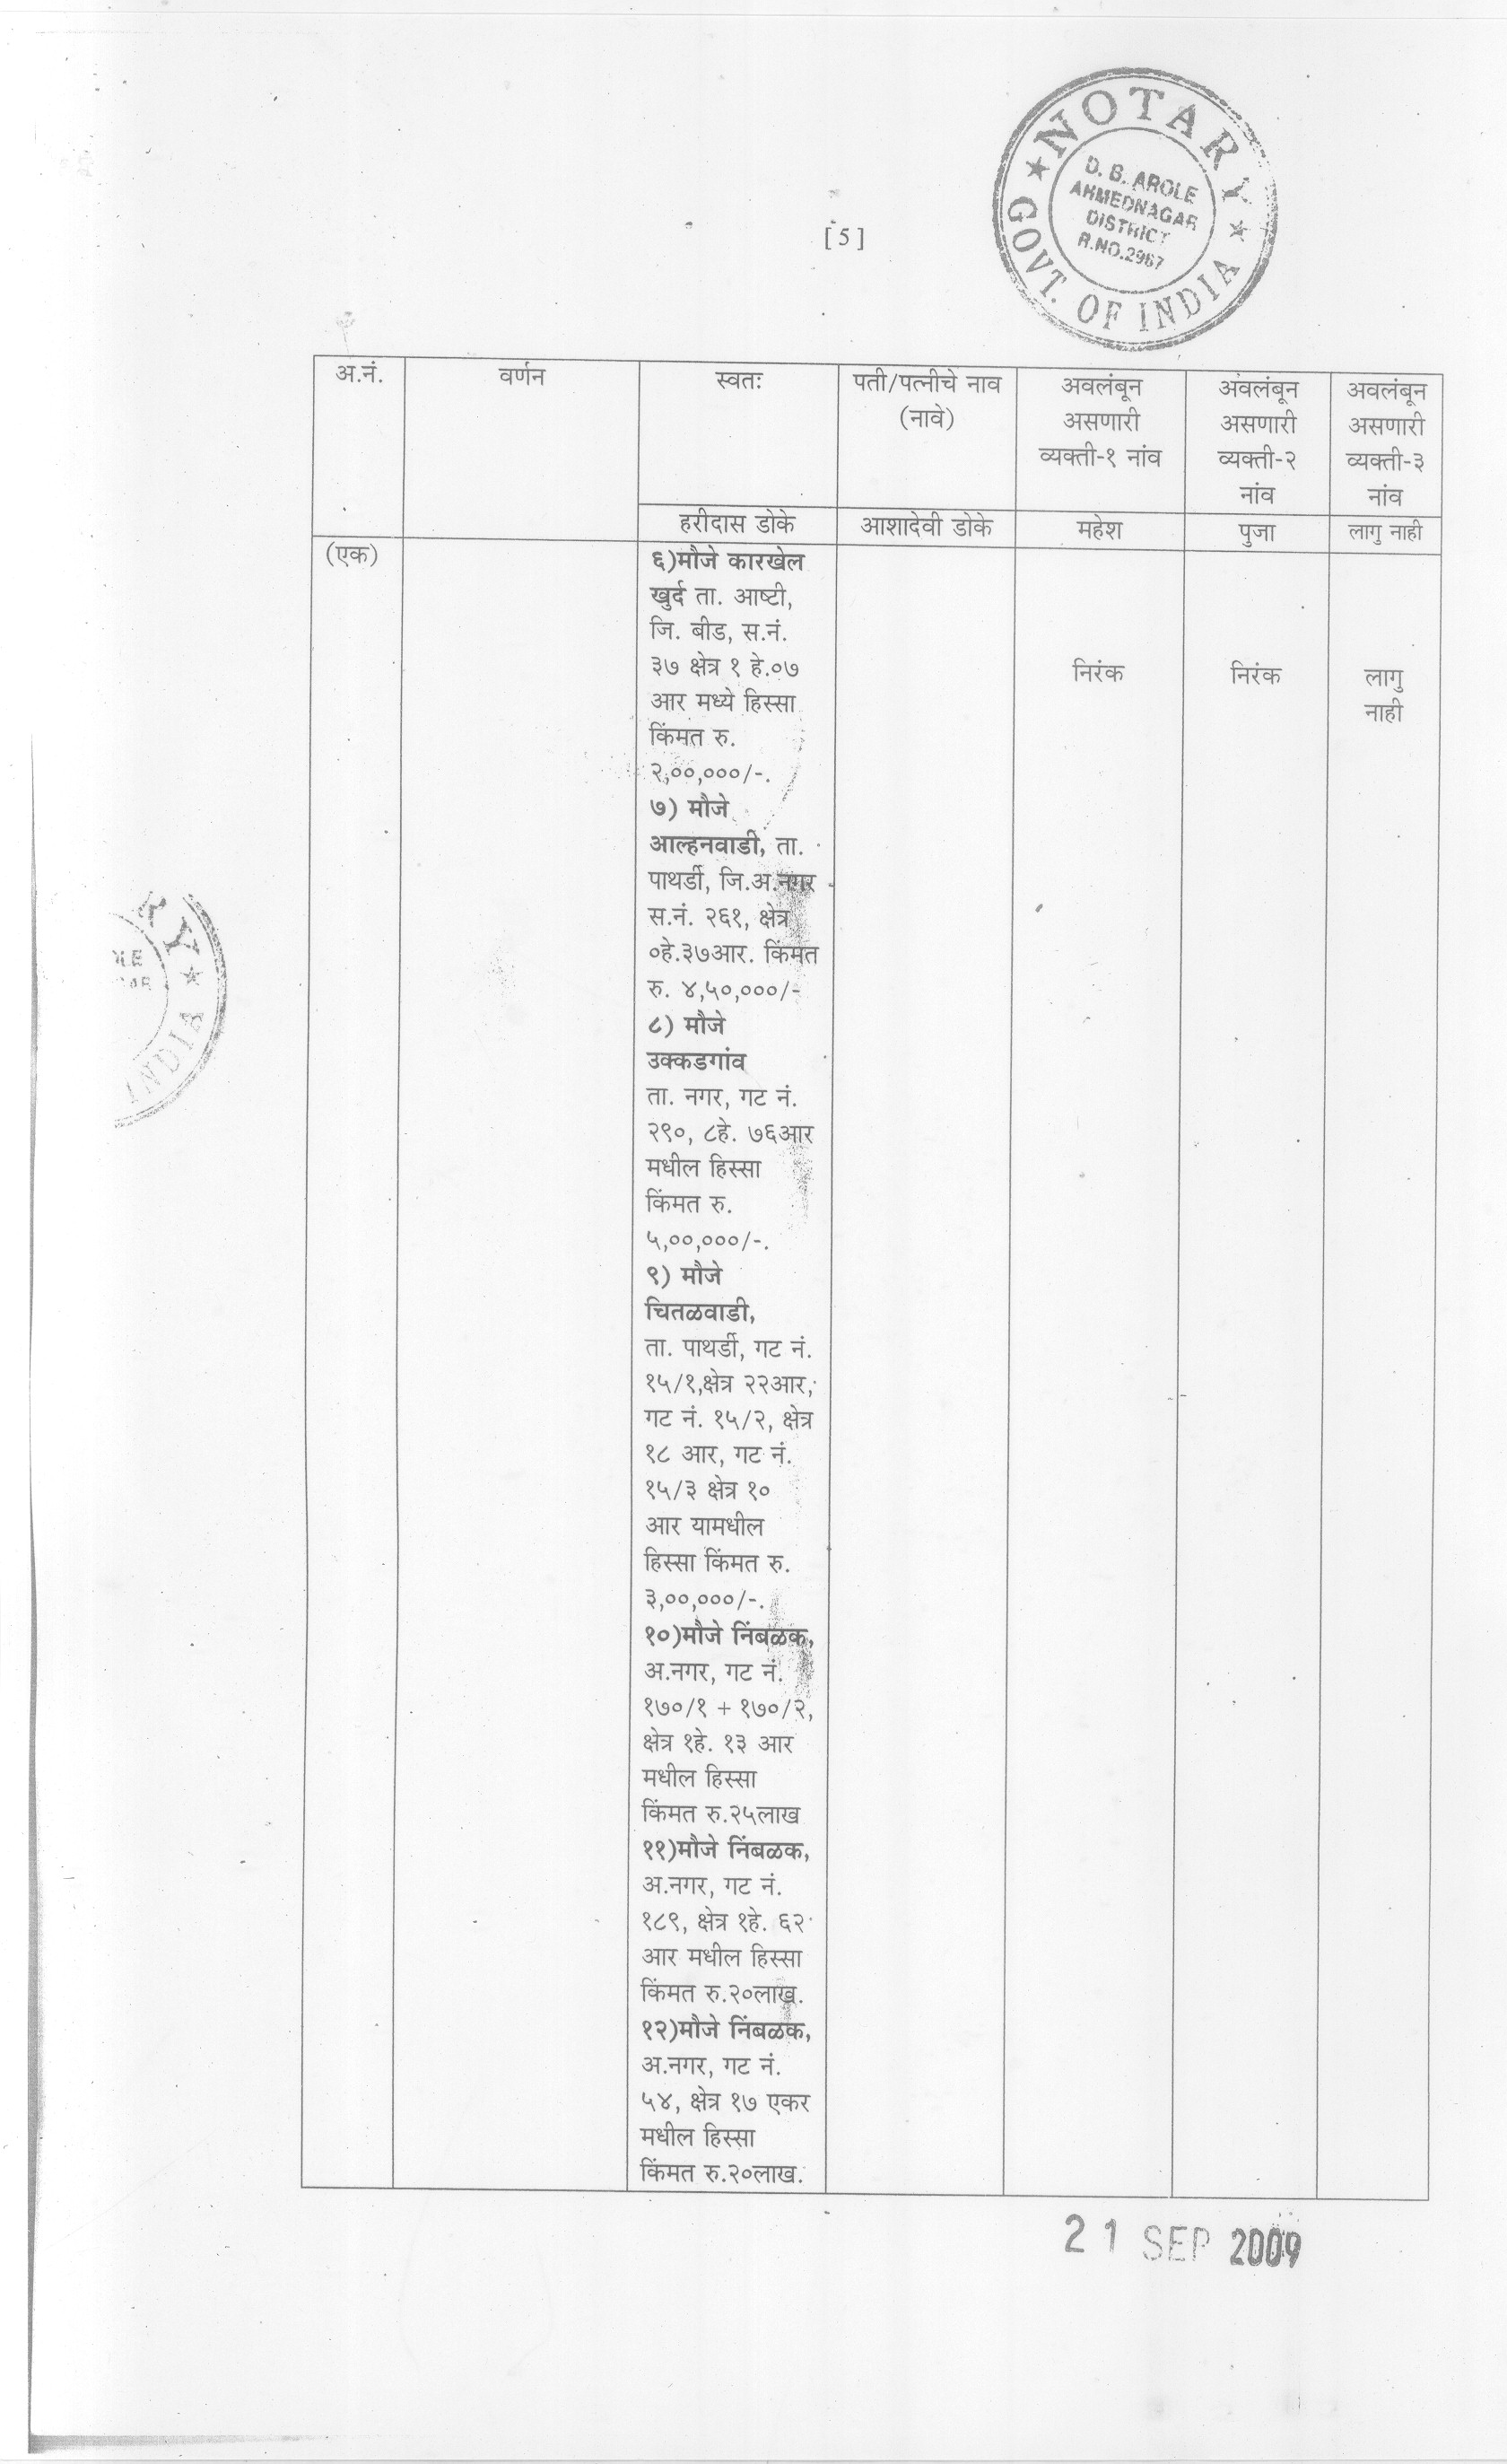 NOTARY
GOVT. OF INDIA
D. B. AROLE
AHMEDNAGAR
DISTRICT
R.NO.2967
[5]
अ.नं.
वर्णन
स्वतः
पती/पत्नीचे नाव
(नावे)
अवलंबून
असणारी
व्यक्ती-१ नांव
अवलंबून
असणारी
व्यक्ती-२
नांव
अवलंबून
असणारी
व्यक्ती-३
नांव
हरीदास डोके
आशादेवी डोके
महेश
पुजा
लागु नाही
(एक)
६)मौजे कारखेल
खुर्द ता. आष्टी,
जि. बीड, स.नं.
३७ क्षेत्र १ हे.०७
आर मध्ये हिस्सा
किंमत रु.
२,००,०००/-.
७) मौजे
आल्हनवाडी, ता.
पाथर्डी, जि.अ.नगर
स.नं. २६१, क्षेत्र
०हे.३७आर. किंमत
रु. ४,५०,०००/-
८) मौजे
उक्कडगांव
ता. नगर, गट नं.
२९०, ८हे. ७६आर
मधील हिस्सा
किंमत रु.
५,००,०००/-.
९) मौजे
चितळवाडी,
ता. पाथर्डी, गट नं.
१५/१,क्षेत्र २२आर,
गट नं. १५/२, क्षेत्र
१८ आर, गट नं.
१५/३ क्षेत्र १०
आर यामधील
हिस्सा किंमत रु.
३,००,०००/-.
१०)मौजे निंबळक,
अ.नगर, गट नं.
१७०/१ + १७०/२,
क्षेत्र १हे. १३ आर
मधील हिस्सा
किंमत रु.२५लाख
११)मौजे निंबळक,
अ.नगर, गट नं.
१८९, क्षेत्र १हे. ६२
आर मधील हिस्सा
किंमत रु.२०लाख.
१२)मौजे निंबळक,
अ.नगर, गट नं.
५४, क्षेत्र १७ एकर
मधील हिस्सा
किंमत रु.२०लाख.
निरंक
निरंक
लागु
नाही
RY
INDIA
21 SEP 2009